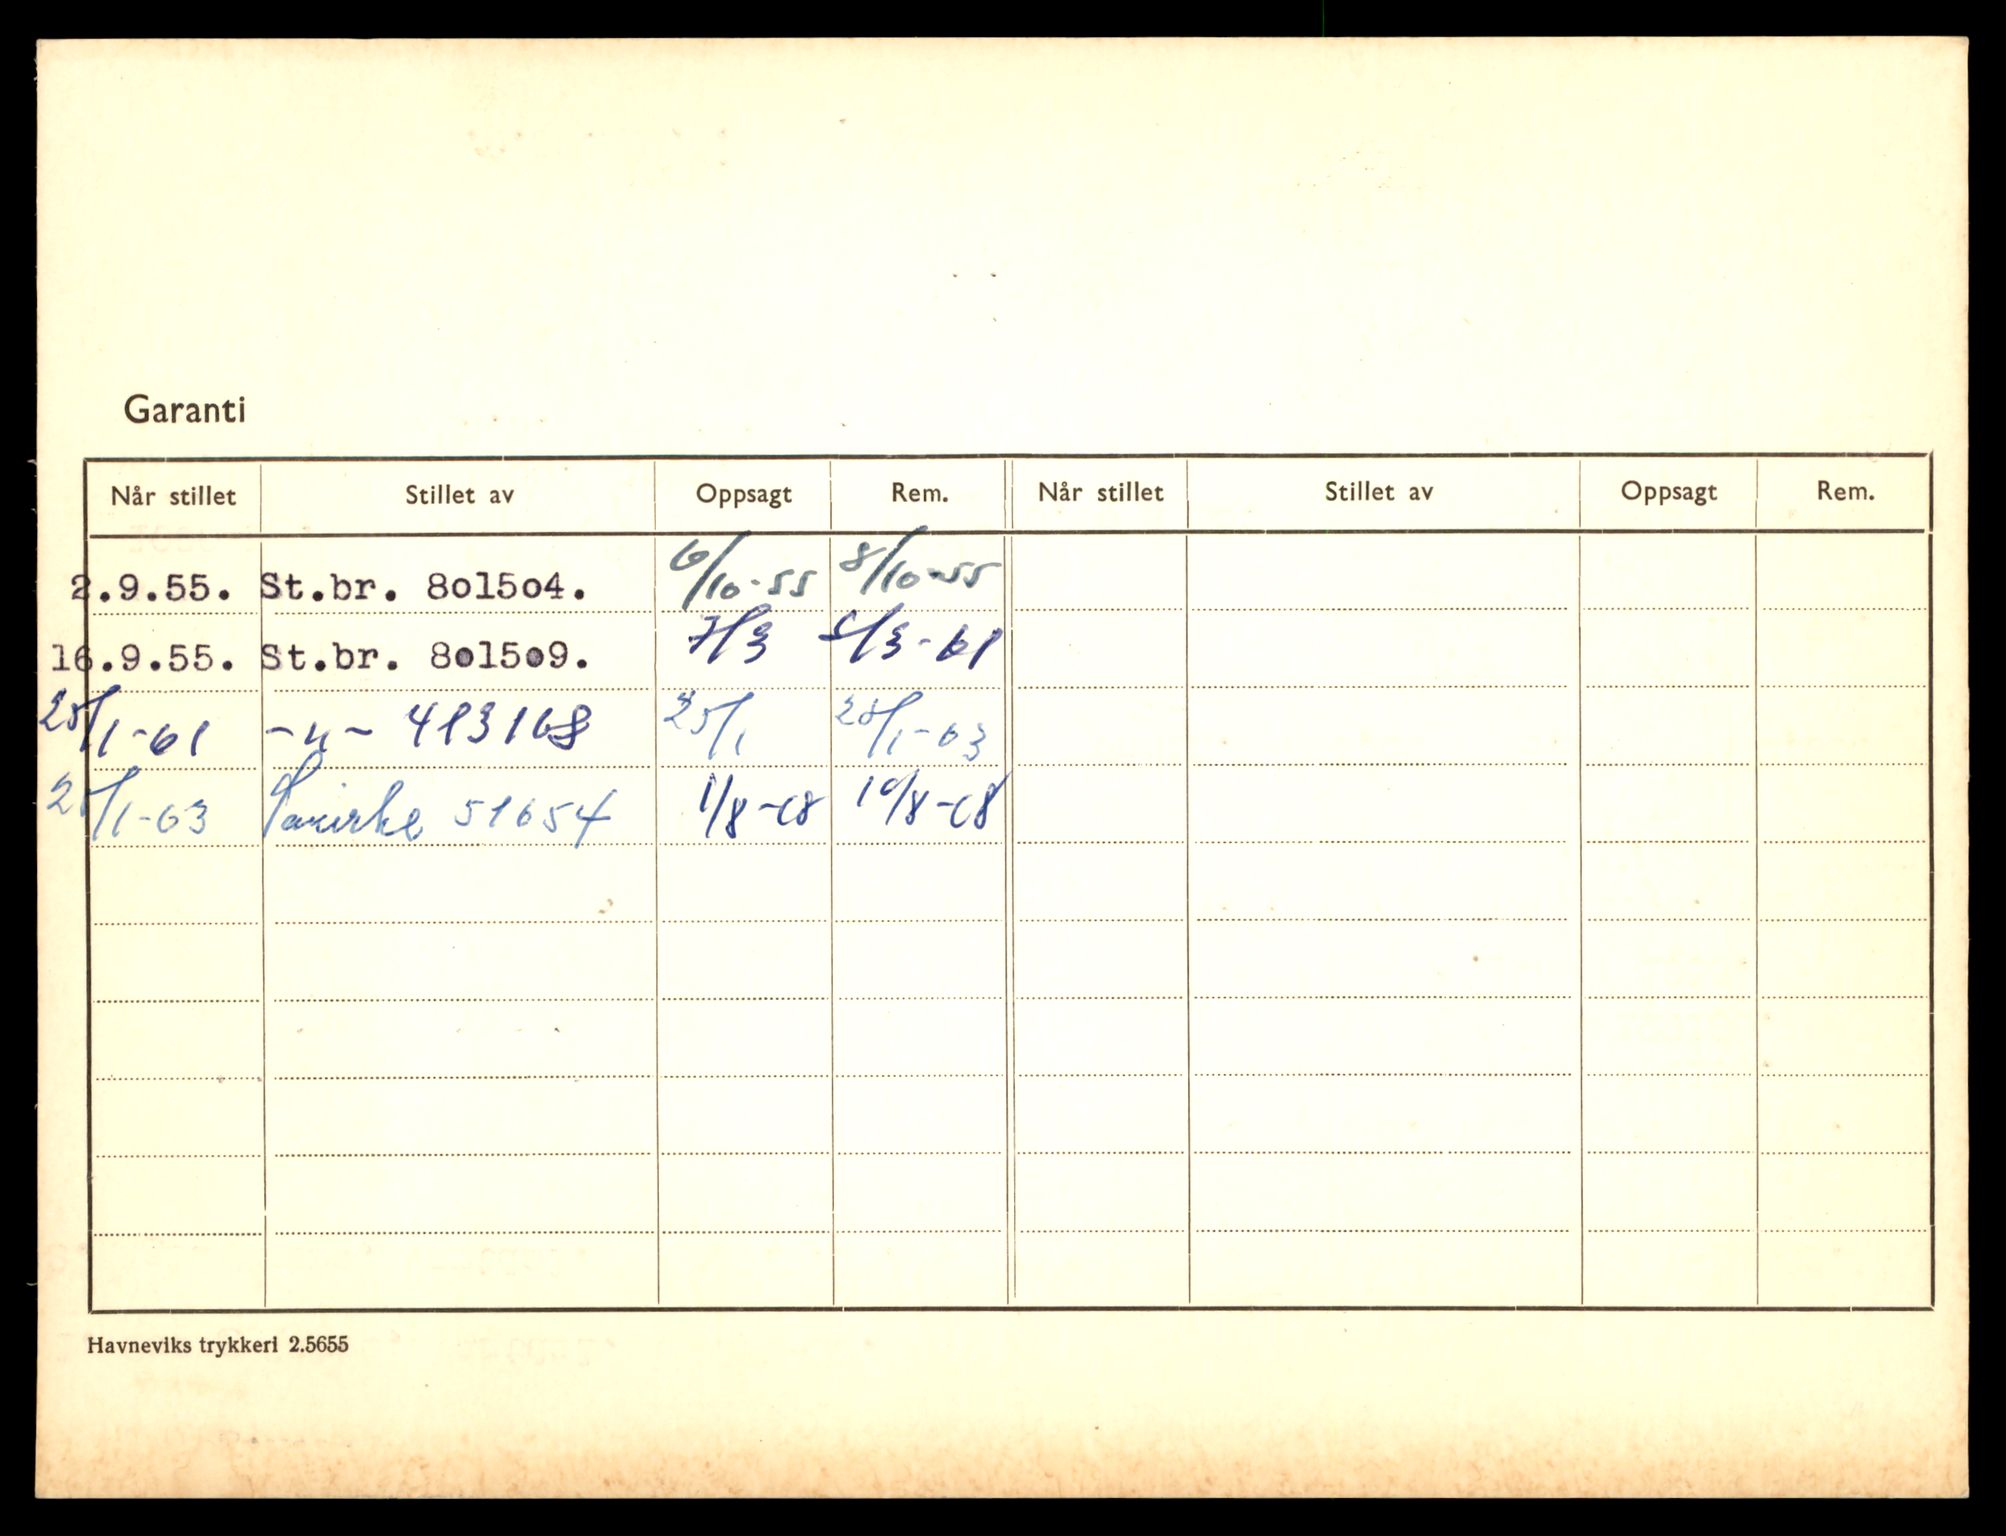 Garanti
Når stillet Stillet av Oppsagt Rem. Når stillet Stillet av Oppsagt Rem.
2.9.55. St.br. 8o15o4. 6/10-55 8/10-55
16.9.55. St.br. 8o15o9. 7/3 /3-61
25/1-61 -"- 413168 25/1 /1-63
/1-63 51654 1/8-68 10/8-68
Havneviks trykkeri 2.5655